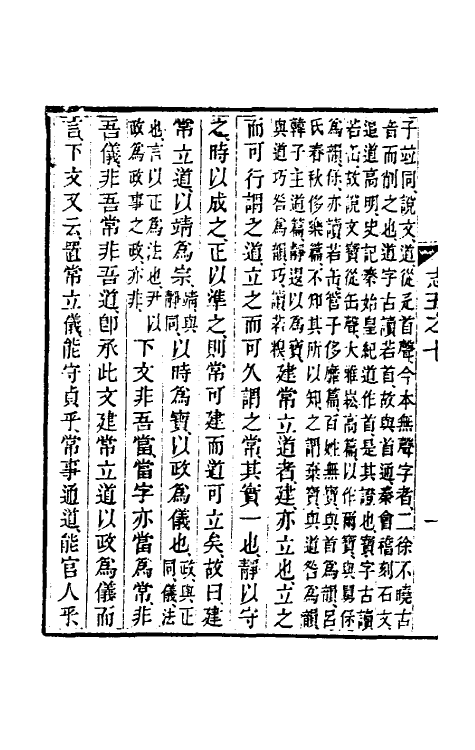 子竝同說文道從辵首聲今本無聲字者二徐不曉古
音而削之也道字古讀若首故與首通秦會稽刻石文
追道高明史記秦始皇紀道作首是其證也寶字古讀
若缶故說文寶從缶聲大雅崧高篇以作爾寶與舅保
為韻保亦讀若缶管子侈靡篇百姓無寶與首為韻呂
氏春秋侈樂篇不知其所以知之謂棄寶與道咎為韻
韓子主道篇靜退以為寶
與道巧咎為韻巧讀若糗建常立道者建亦立也立之
而可行謂之道立而可久謂之常其實一也靜以守
之時以成之正以準之則常可建而道可立矣故曰建
常立道以靖為宗靖與靜同以時為寶以政為儀也政與正同儀法
也言以正為法也尹以政為政事之政亦非下文非吾當當字亦當為常非
吾儀非吾常非吾道卽承此文建常立道以政為儀而
言下文又云置常立儀能守貞乎常事通道能官人乎
志五之七
一